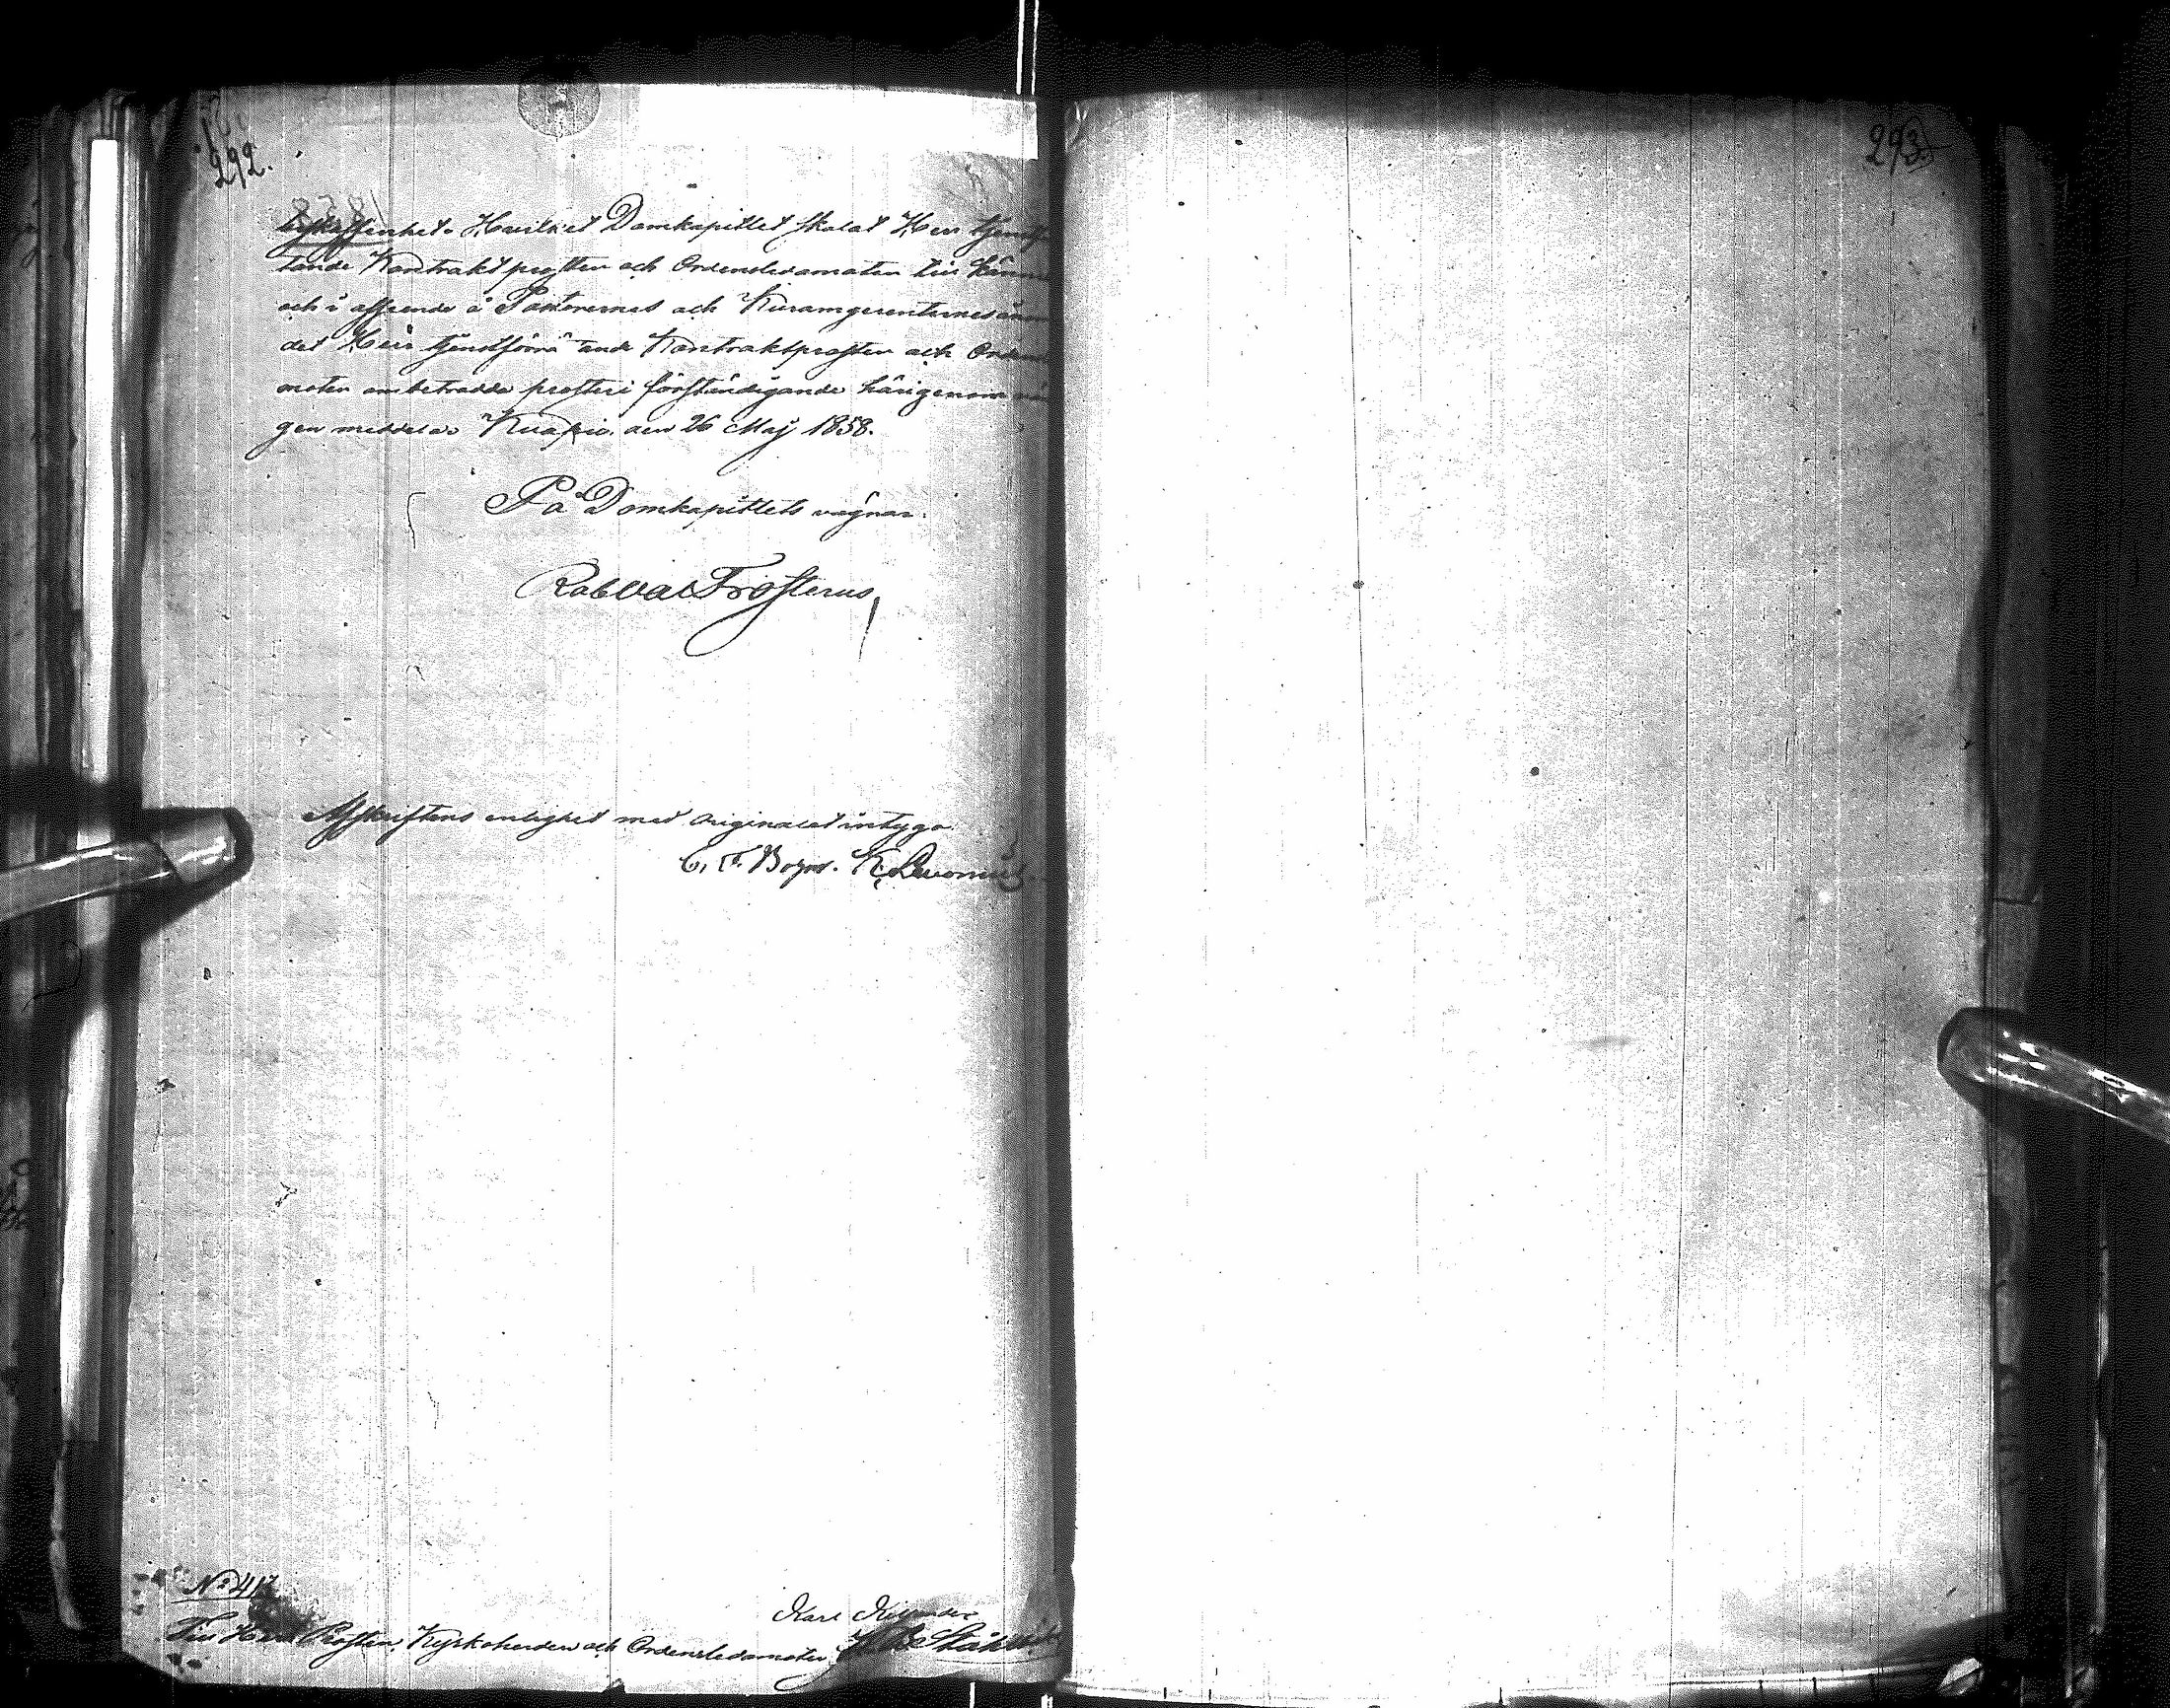 292.
293.
beskaffenhet. Hvilket Domkapitlet skolat Herr tjenstf
tande Kontraktprosten och Ordensledamoten till känne
och i afseende å Pastorernes och Kuramgerenternes inom
det Herr tjenstförrättande Kontraktsprosten och Ordensleda
moten ombetrodda prosteri förständigande härigenom
gen meddela. Kuopio, den 26 Maj 1858.
På Domkapitlets vägnar.
Rob Val Frosterus
Afskriftens enlighet med originalet intyga
C. F. K.
No 417
Karl
Till Herr Prosten, Kyrkoherden och Ordensledamoten